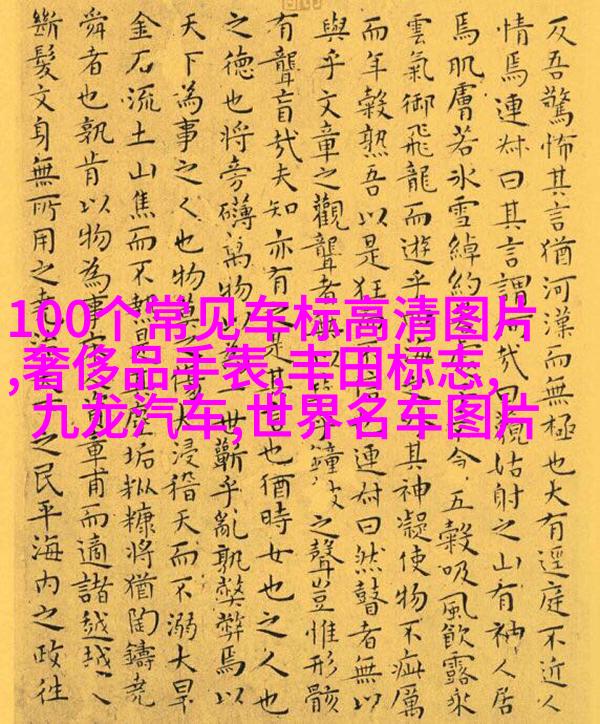 100个常见车标高清图片
,奢侈品手表,丰田标志,
九龙汽车,世界名车图片
反吾驚怖其言猶河漢而無極也大有逕庭不近人
情焉連叔曰其言謂何哉曰藐姑射之山有神人居
焉肌膚若冰雪綽約五穀吸風飲露乘
雲氣御飛龍而遊乎海之其神凝使物不疵厲
而年穀熟吾以是狂而不連叔曰然瞽者無以
與乎文章之觀聾者乎鐘鼓之聲豈惟形骸
有聾盲哉夫知亦有之其也猶時女也之人也
之德也將旁礴萬物以為世蘄乎亂孰弊弊焉以
天下為事之人也物莫之傷大浸稽天而不溺大旱
金石流土山焦而不熱是垢粃糠將猶陶鑄堯
舜者也孰肯以物為事宋資章甫而適諸越越人
斷髮文身無所用之堯之民平海內之政往